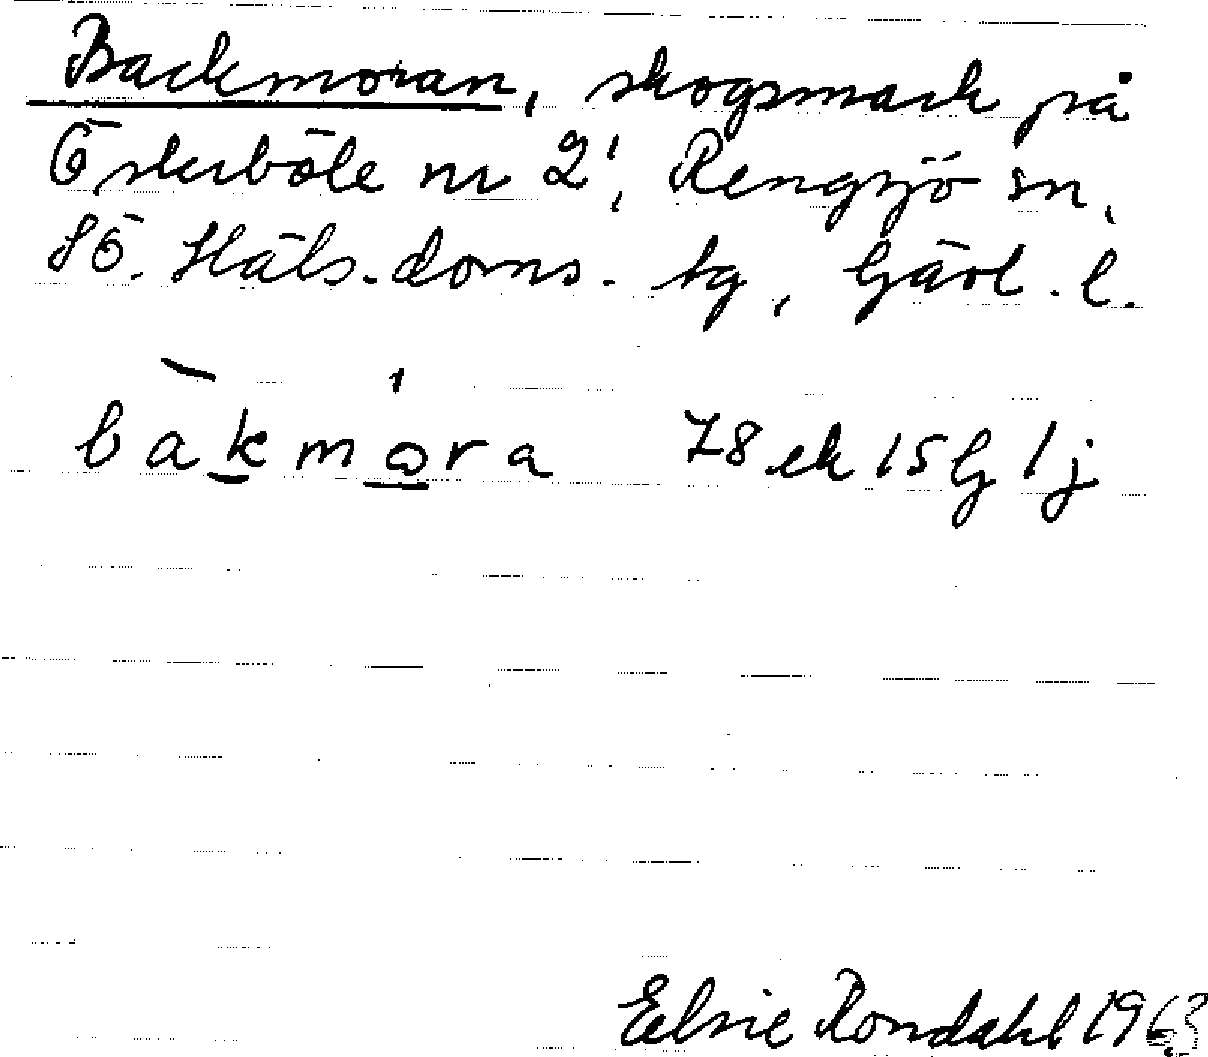 Backmoran, skogsmark på
Österböle nr 2¹, Rengsjö sn,
SÖ. Häls. doms. tg, Gävl. l.
bàk̲mó̲ra 78 ek 15 Gj 1 j
Elsie Rondahl 1963